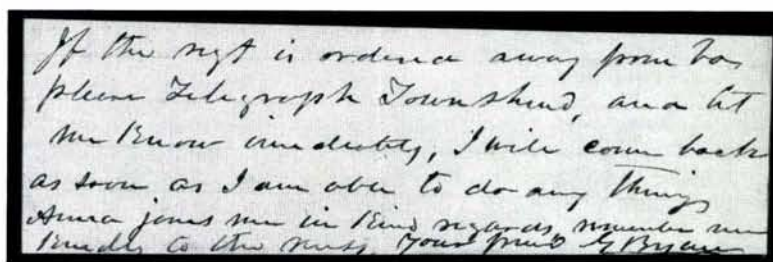 If the regt is ordered away from
please Telegraph Townshend, and let
me Know imediately, I will come back
as soon as I am able to do any thing
Anna joins me in Kind regards, remember me
Kindly to the mess, Your friend G Bryan